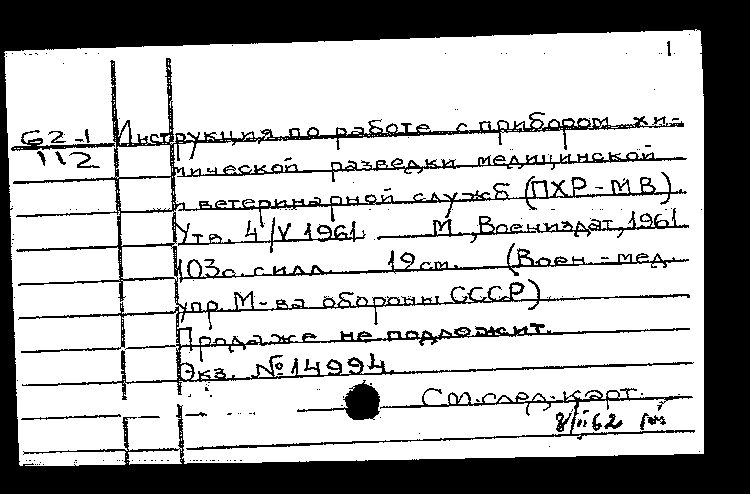 1
62-1 Инструкция по работе с прибором хи-
112
мической разведки медицинской
и ветеринарной служб (ПХР-МВ).
Утв. 4/V 1961. М., Воениздат, 1961.
103 с. с илл. 19 см. (Воен.-мед.
упр. М-ва обороны СССР)
Продаже не подлежит.
Экз. № 14994.
См. след. карт.
8/II 62